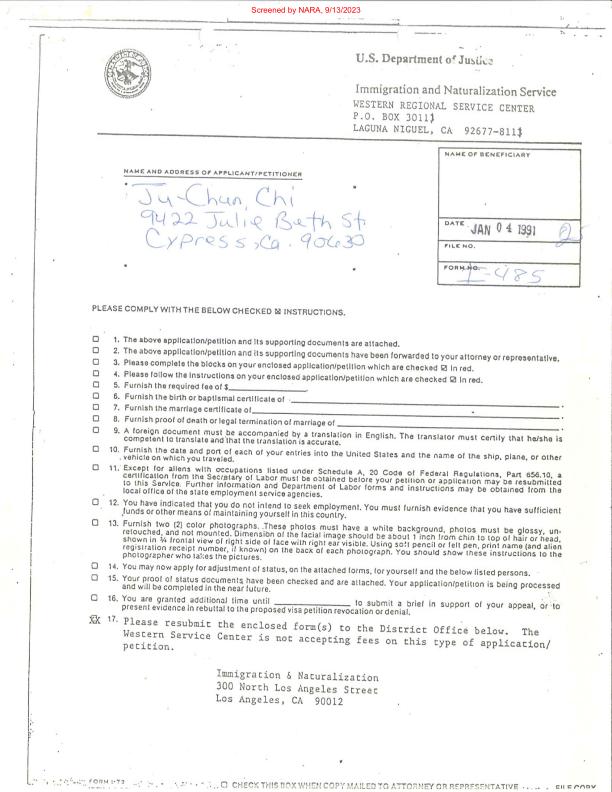 Screened by NARA, 9/13/2023
U.S. Department of Justice
Immigration and Naturalization Service
WESTERN REGIONAL SERVICE CENTER
P.O. BOX 30111
LAGUNA NIGUEL, CA 92677-8111
NAME OF BENEFICIARY
NAME AND ADDRESS OF APPLICANT/PETITIONER
Ju-Chun, Chi
9422 Julie Beth St.
Cypress, Ca. 90630
DATE JAN 04 1991
FILE NO.
FORM NO. I-485
PLEASE COMPLY WITH THE BELOW CHECKED ☒ INSTRUCTIONS.
☐ 1. The above application/petition and its supporting documents are attached.
☐ 2. The above application/petition and its supporting documents have been forwarded to your attorney or representative.
☐ 3. Please complete the blocks on your enclosed application/petition which are checked ☑ in red.
☐ 4. Please follow the instructions on your enclosed application/petition which are checked ☑ in red.
☐ 5. Furnish the required fee of $
☐ 6. Furnish the birth or baptismal certificate of .
☐ 7. Furnish the marriage certificate of .
☐ 8. Furnish proof of death or legal termination of marriage of .
☐ 9. A foreign document must be accompanied by a translation in English. The translator must certify that he/she is
competent to translate and that the translation is accurate.
☐ 10. Furnish the date and port of each of your entries into the United States and the name of the ship, plane, or other
vehicle on which you traveled.
☐ 11. Except for aliens with occupations listed under Schedule A, 20 Code of Federal Regulations, Part 656.10, a
certification from the Secretary of Labor must be obtained before your petition or application may be resubmitted
to this Service. Further information and Department of Labor forms and instructions may be obtained from the
local office of the state employment service agencies.
☐ 12. You have indicated that you do not intend to seek employment. You must furnish evidence that you have sufficient
funds or other means of maintaining yourself in this country.
☐ 13. Furnish two (2) color photographs. These photos must have a white background, photos must be glossy, un-
retouched, and not mounted. Dimension of the facial image should be about 1 inch from chin to top of hair or head,
shown in ¾ frontal view of right side of face with right ear visible. Using soft pencil or felt pen, print name (and alien
registration receipt number, if known) on the back of each photograph. You should show these instructions to the
photographer who takes the pictures.
☐ 14. You may now apply for adjustment of status, on the attached forms, for yourself and the below listed persons.
☐ 15. Your proof of status documents have been checked and are attached. Your application/petition is being processed
and will be completed in the near future.
☐ 16. You are granted additional time until to submit a brief in support of your appeal, or to
present evidence in rebuttal to the proposed visa petition revocation or denial.
XX 17. Please resubmit the enclosed form(s) to the District Office below. The
Western Service Center is not accepting fees on this type of application/
petition.
Immigration & Naturalization
300 North Los Angeles Street
Los Angeles, CA 90012
☐ CHECK THIS BOX WHEN COPY MAILED TO ATTORNEY OR REPRESENTATIVE
FILE COPY